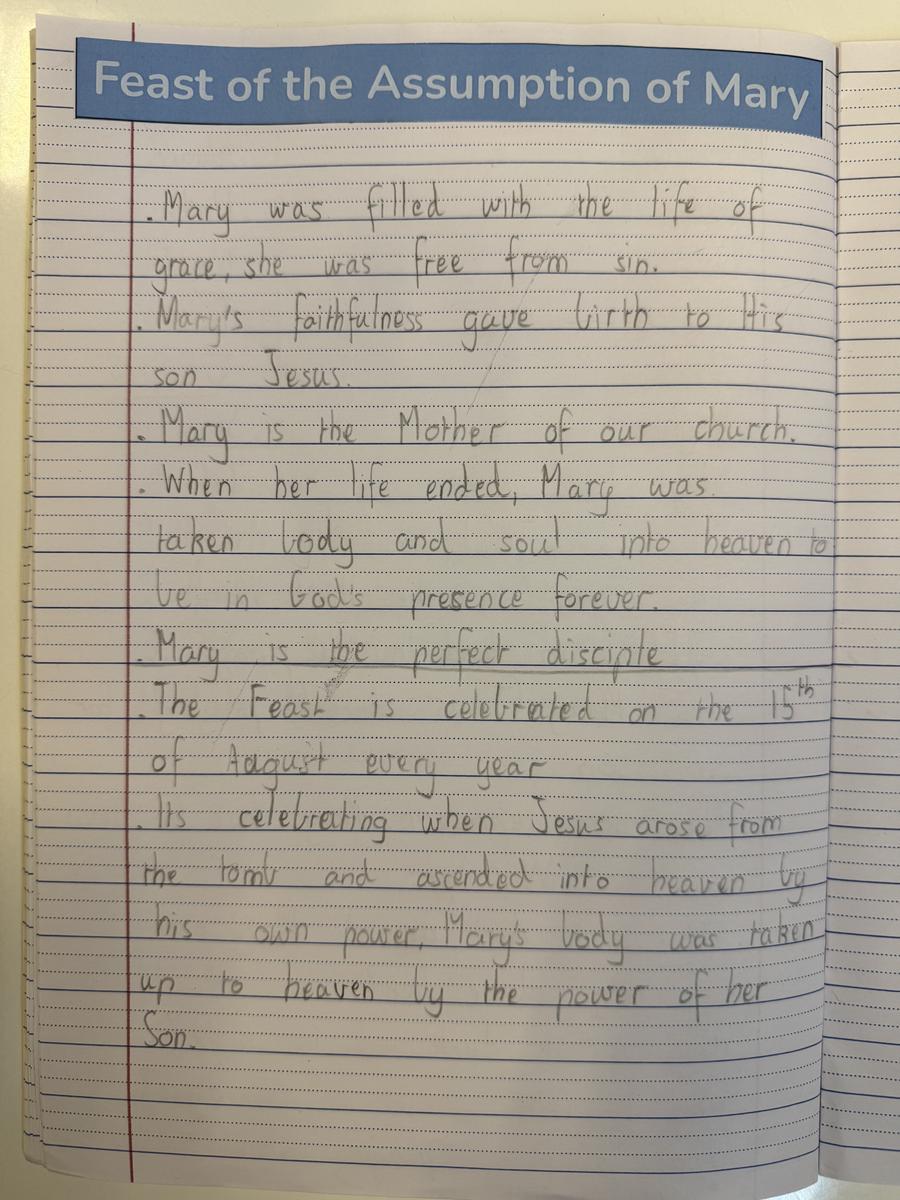 Feast of the Assumption of Mary
. Mary was filled with the life of
grace, she was free from sin.
. Mary's faithfulness gave birth to His
son Jesus.
. Mary is the Mother of our church.
. When her life ended, Mary was
taken body and soul into heaven to
be in God's presence forever.
. Mary is the perfect disciple
. The Feast is celebrated on the 15th
of August every year
. Its celebrating when Jesus arose from
the tomb and ascended into heaven by
his own power, Mary's body was taken
up to heaven by the power of her
Son.